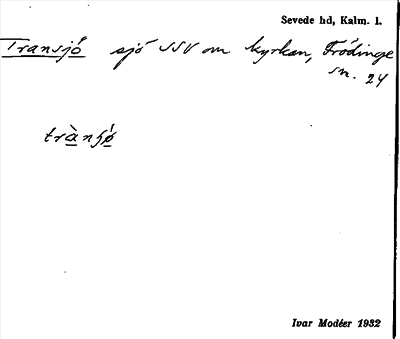 Sevede hd, Kalm. l.
Transjö sjö SSV om kyrkan, Frödinge
sn. 24
trànʃǿ
Ivar Modéer 1932